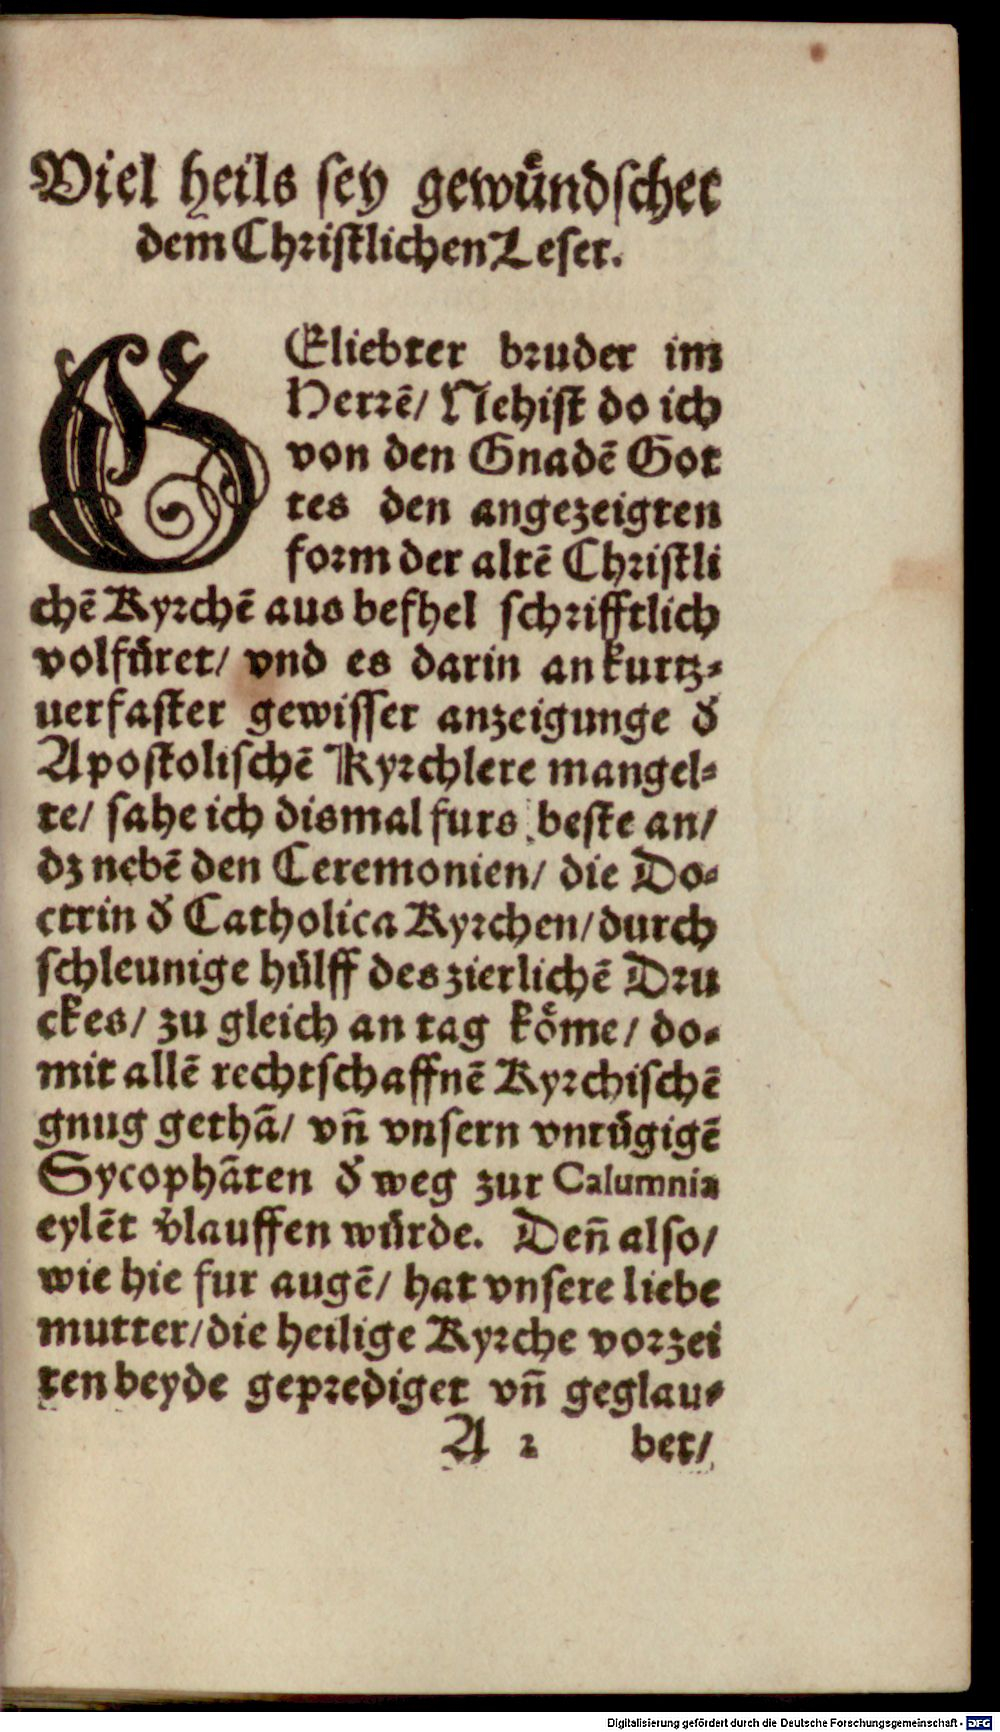 Viel heils sey gewuͤndschet
dem Christlichen Leser.
GEliebter bruder im
Herrē/ Nehist do ich
von den Gnadē Got
tes den angezeigten
form der altē Christli
chē Kyrchē aus befhel schrifftlich
volfüret/ vnd es darin an kurtz⸗
uerfaster gewisser anzeigunge d̕
Apostolischē Kyrchlere mangel⸗
te/ sahe ich dismal furs beste an/
dz nebē den Ceremonien/ die Do⸗
ctrin d̕ Catholica Kyrchen/ durch
schleunige hülff des zierlichē Dru
ckes/ zu gleich an tag koͤme/ do⸗
mit allē rechtschaffnē Kyrchischē
gnug gethā/ vn̄ vnsern vntügigē
Sycophāten d̕ weg zur Calumnia
eylēt v̕lauffen würde. Den̄ also/
wie hie fur augē/ hat vnsere liebe
mutter/ die heilige Kyrche vorzei
ten beyde geprediget vn̄ geglau⸗
A 2 bet/
Digitalisierung gefördert durch die Deutsche Forschungsgemeinschaft - DFG